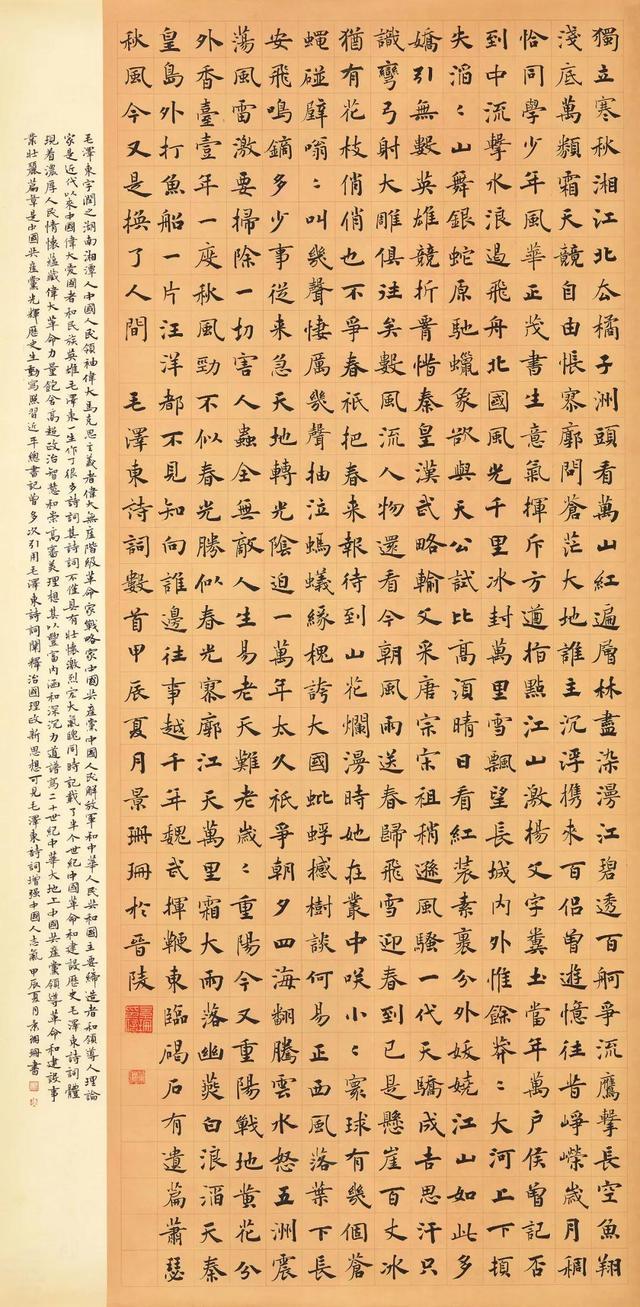 獨立寒秋湘江北去橘子洲頭看萬山紅遍層林盡染漫江碧透百舸爭流鷹擊長空魚翔
淺底萬類霜天競自由悵寥廓問蒼茫大地誰主沉浮携來百侶曾遊憶往昔崢嶸歲月稠
恰同學少年風華正茂書生意氣揮斥方遒指點江山激揚文字糞土當年萬戶侯曾記否
到中流擊水浪遏飛舟北國風光千里冰封萬里雪飄望長城內外惟餘莽〻大河上下頓
失滔〻山舞銀蛇原馳蠟象欲與天公試比高須晴日看紅裝素裹分外妖嬈江山如此多
嬌引無數英雄競折腰惜秦皇漢武略輸文采唐宗宋祖稍遜風騷一代天驕成吉思汗只
識彎弓射大雕俱往矣數風流人物還看今朝風雨送春歸飛雪迎春到已是懸崖百丈冰
猶有花枝俏俏也不爭春祇把春來報待到山花爛漫時她在叢中咲小〻寰球有幾個蒼
蠅碰壁嗡〻叫幾聲悽厲幾聲抽泣螞蟻緣槐誇大國蚍蜉撼樹談何易正西風落葉下長
安飛鳴鏑多少事從来急天地轉光陰迫一萬年太久祇爭朝夕四海翻騰雲水怒五洲震
蕩風雷激要掃除一切害人蟲全無敵人生易老天難老歲〻重陽今又重陽戰地黃花分
外香臺壹年一度秋風勁不似春光勝似春光寥廓江天萬里霜大雨落幽燕白浪滔天秦
皇島外打魚船一片汪洋都不見知向誰邊往事越千年魏武揮鞭東臨碣石有遺篇蕭瑟
秋風今又是換了人間 毛澤東詩詞數首甲辰夏月景珊珊於晋陵
毛澤東字潤之湖南湘潭人中國人民領袖偉大馬克思主義者偉大無產階級革命家戰略家中國共產黨中國人民解放軍和中華人民共和國主要締造者和領導人理論
家是近代以來中國偉大愛國者和民族英雄毛澤東一生作了很多詩詞其詩詞不僅具有壯懷激烈宏大氣魄同時記載了半个世紀中國革命和建設歷史毛澤東詩詞體
現着濃厚人民情懷蕴藏偉大革命力量飽含高超政治智慧和崇高審美理想其以豐富内涵和深沉力道譜寫二十世紀中華大地上中國共產黨領導革命和建設事
業壯麗篇章是中國共產黨光輝歷史生動寫照習近平總書記曾多次引用毛澤東詩詞闡釋治國理政新思想可見毛澤東詩詞增强中國人志氣 甲辰夏月景珊珊書